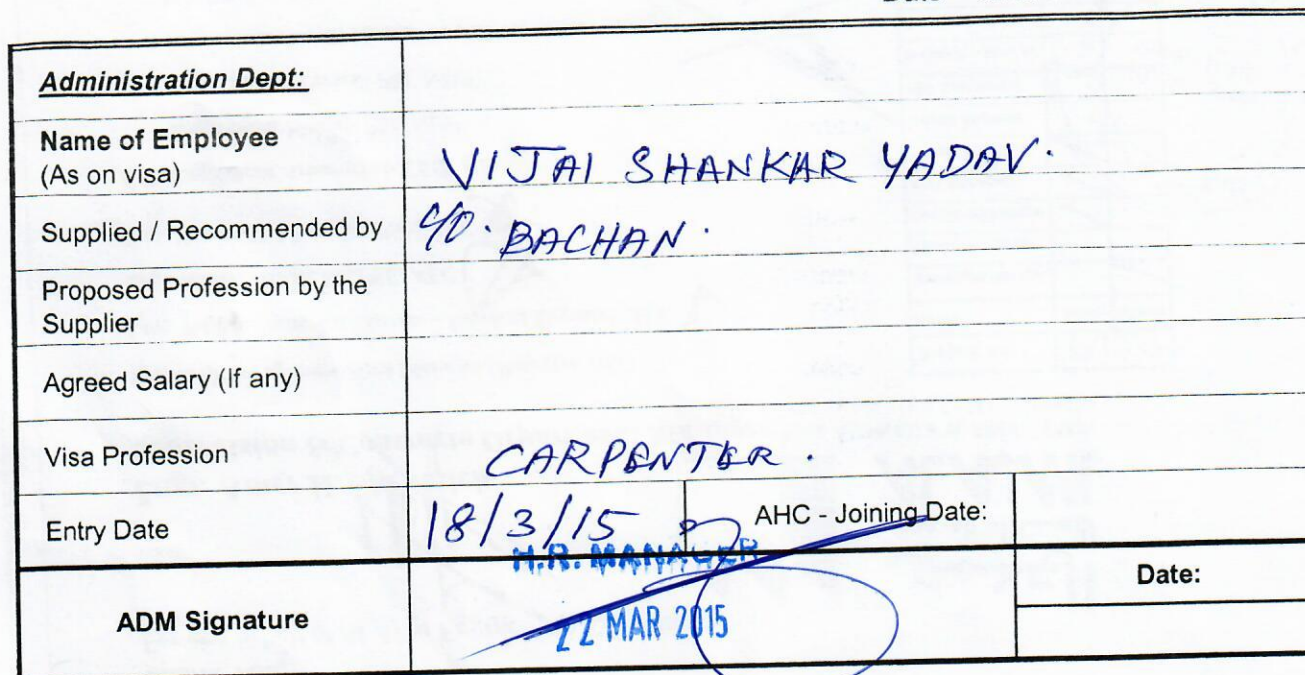 Administration Dept:
Name of Employee
(As on visa)
VIJAI SHANKAR YADAV.
Supplied / Recommended by
C/O. BACHAN.
Proposed Profession by the
Supplier
Agreed Salary (If any)
Visa Profession
CARPENTER.
Entry Date
18/3/15
AHC - Joining Date:
H.R. MANAGER
ADM Signature
22 MAR 2015
Date: